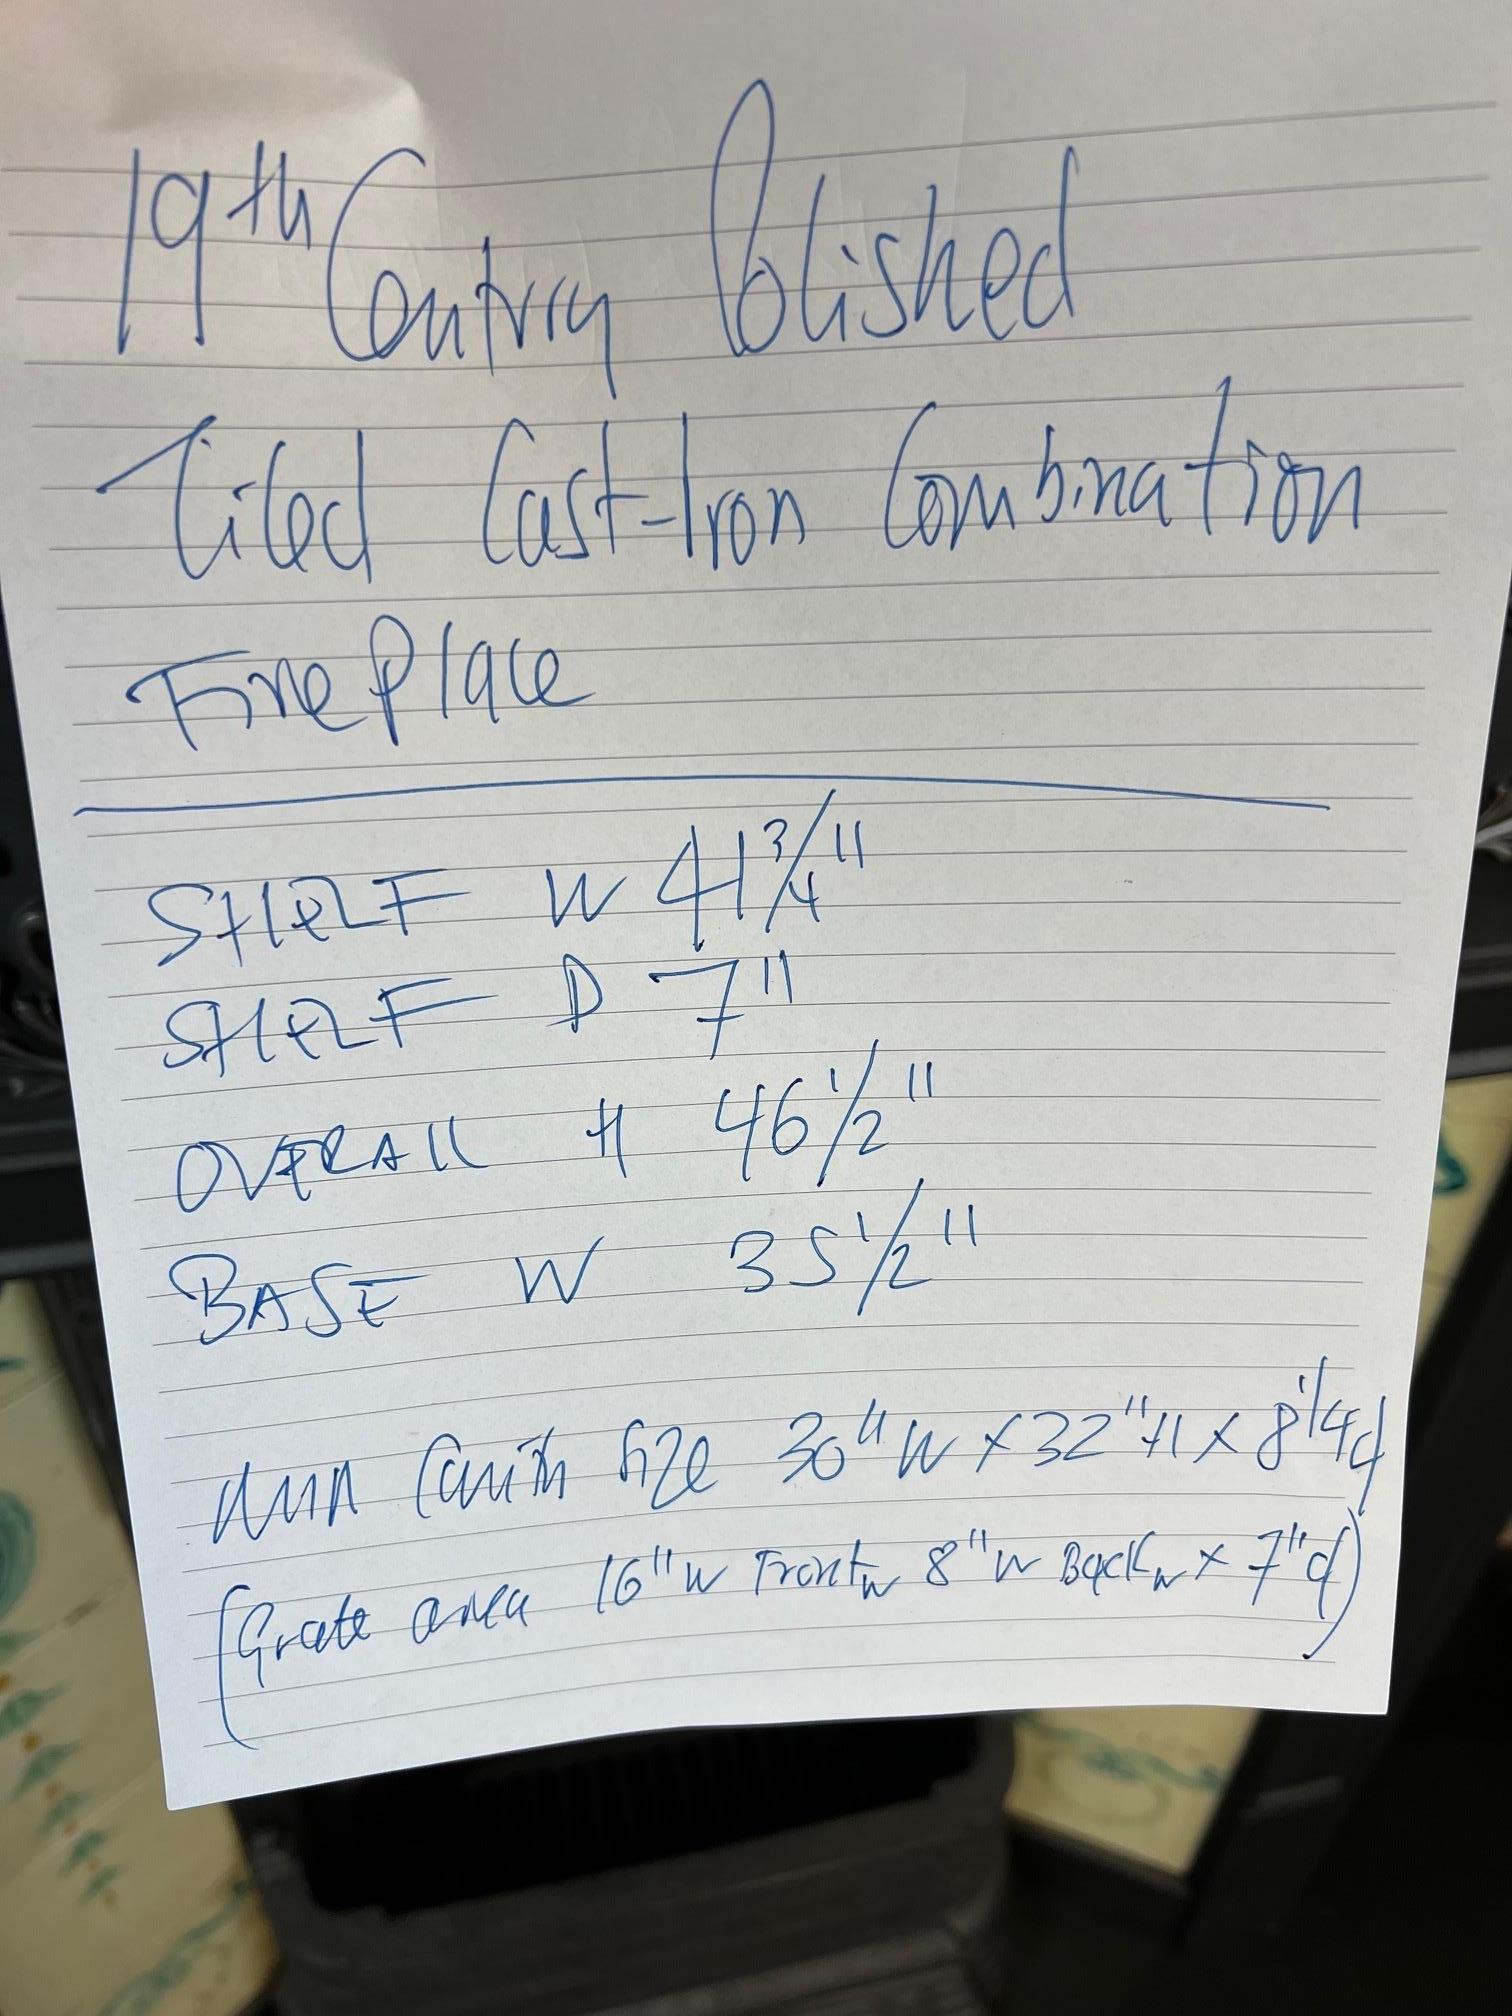 19th Century Polished
Tiled Cast-Iron Combination
FirePlace
SHELF W 41 3/4"
SHELF D 7"
OVERALL H 46 1/2"
BASE W 35 1/2"
size 30"W x 32"H x 8 1/4d
(Grate area 16"W Front 8"W Back x 7"d)